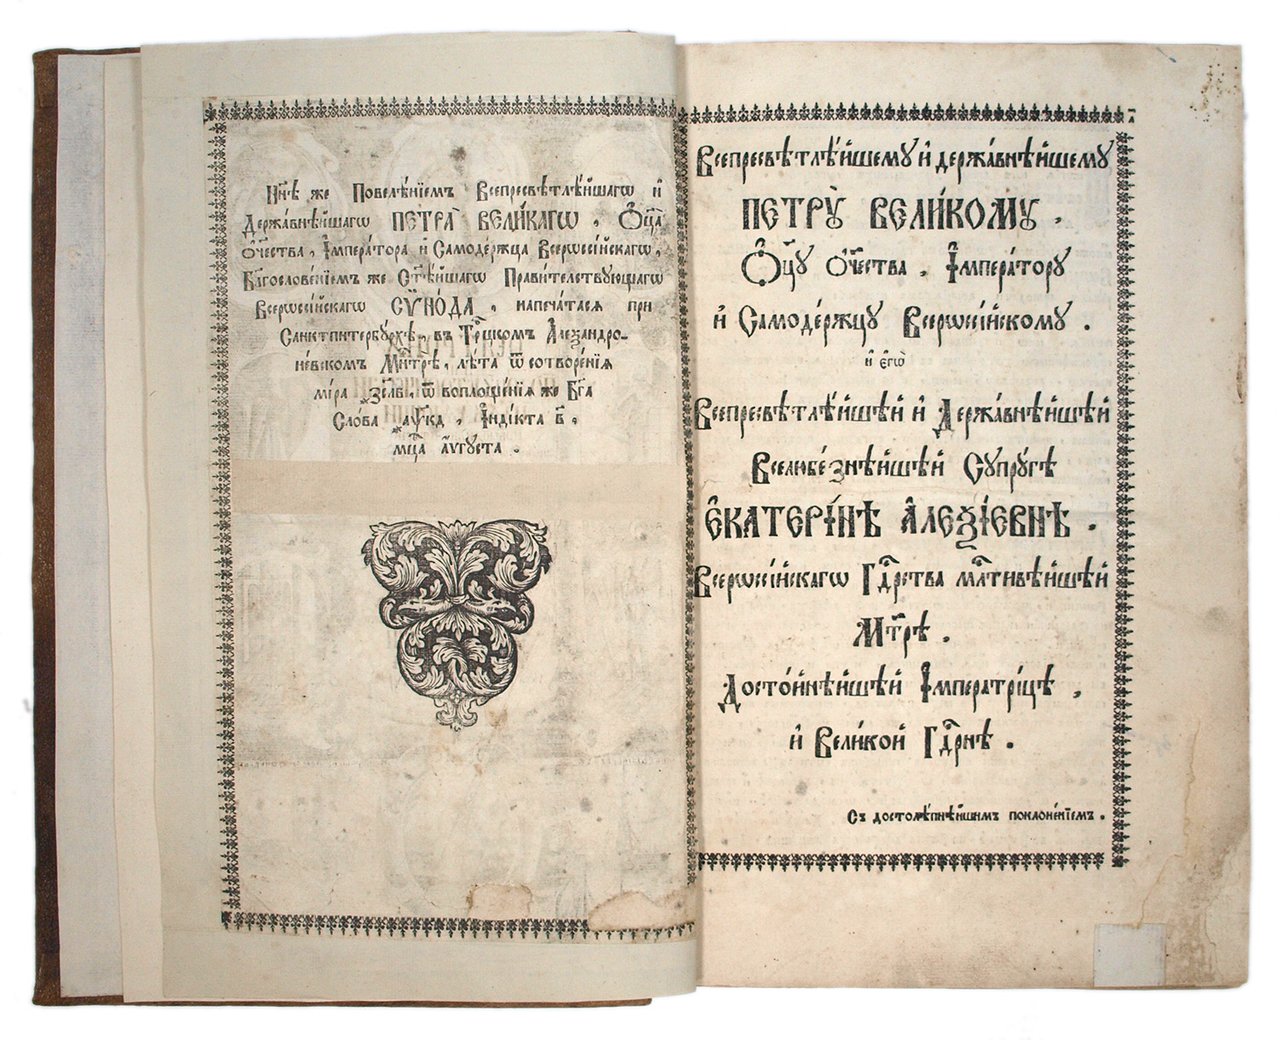 Нн҃ѣ же Повелѣ́нїемъ Всепресвѣтлѣ́йшагѡ и҆
Держа́внѣйшагѡ ПЕТРА̀ ВЕЛИ́КАГѠ, Ѻ҆ц҃а̀
Ѻ҆те́чества, І҆мпера́тора и҆ Самоде́ржца Всерѡссі́йскагѡ,
Бл҃гослове́нїемъ же Ст҃ѣ́йшагѡ Прави́телствующагѡ
Всерѡссі́йскагѡ СѴНО́ДА, напеча́тася при
Санктпитербу́рхѣ, въ Тр҃цкомъ Алеѯандро-
невскомъ Мн҃трѣ̀, лѣ́та ѿ сотворе́нїя
мі́ра ҂зслв, ѿ воплоще́нїя же Бг҃а
Сло́ва ҂аѱкд, І҆ндїкта в҃,
мц҃а а҆ѵ́густа.
Всепресвѣтлѣ́йшему и҆ держа́внѣйшему
ПЕТРꙊ̀ ВЕЛИ́КОМꙊ,
Ѻ҆ц҃ꙋ̀ ѻ҆те́чества, І҆мпера́торꙋ
и҆ Самоде́ржцꙋ Всерѡссі́йскомꙋ.
и҆ є҆гѡ̀
Всепресвѣтлѣ́йшей и҆ Держа́внѣйшей
Вселюбе́знѣйшей Сꙋпрꙋ́гѣ
Є҆КАТЕРІ́НѢ А҆ЛЕѮІ́ЕВНѢ.
Всерѡссі́йскагѡ Гдⷭ҇рства млⷭ҇тивѣйшей
Мт҃рѣ.
Досто́йнѣйшей І҆мператрі́цѣ,
и҆ Вели́кой Гдⷭ҇рнѣ.
Съ достолѣ́пнѣйшимъ поклоне́нїемъ.